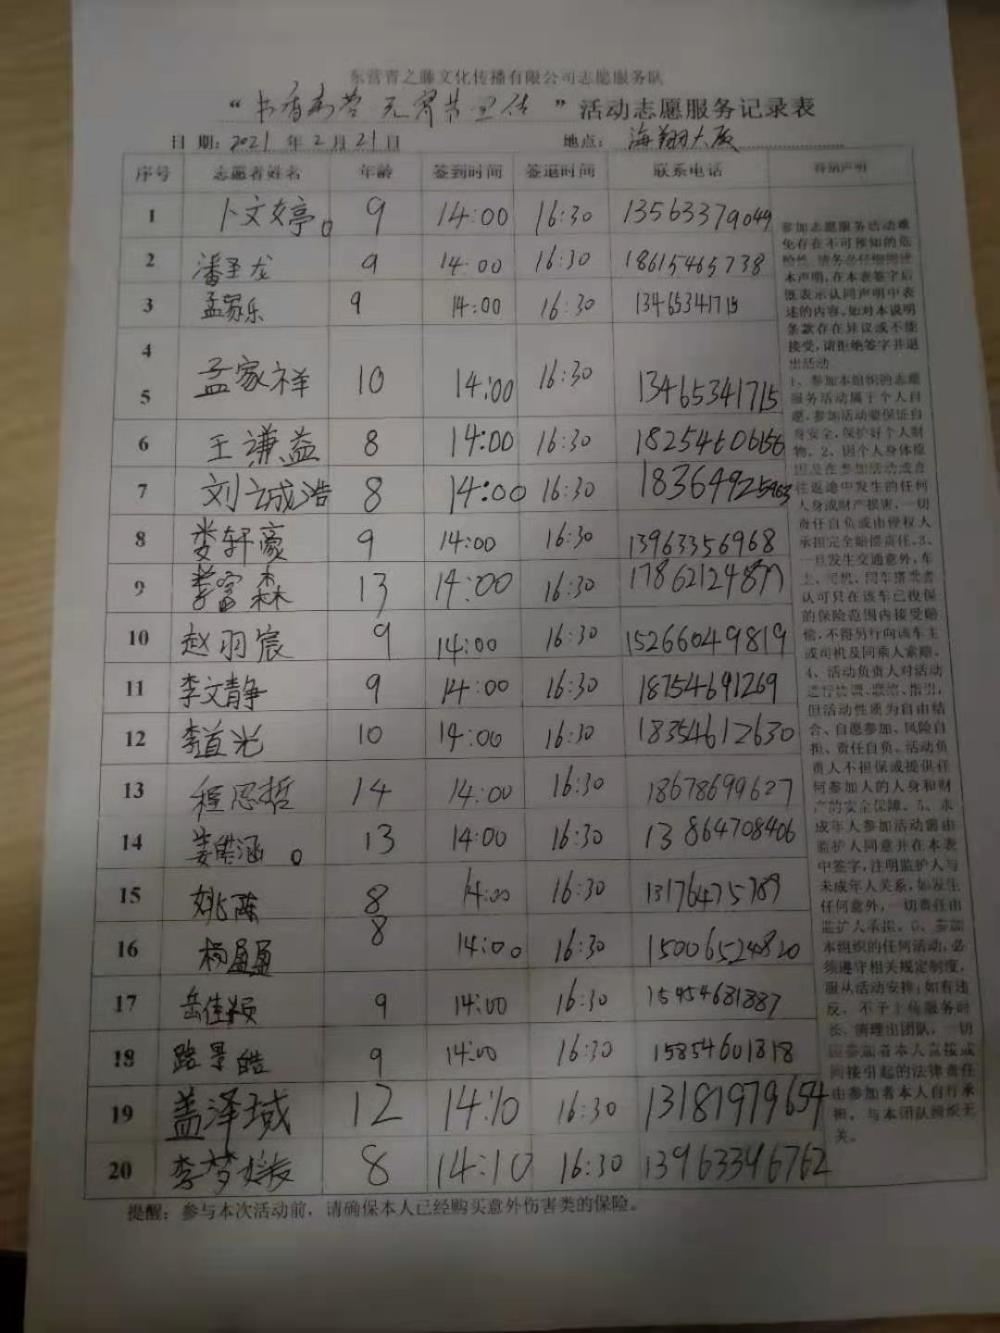 东营青之藤文化传播有限公司志愿服务队
“书香 元宵节 宣传”活动志愿服务记录表
日 期:2021 年 2 月 21 日 地点: 海翔大厦
序号 志愿者姓名 年龄 签到时间 签退时间 联系电话 特别声明
1 卜文婷。 9 14:00 16:30 13563379049
2 潘圣龙 9 14:00 16:30 18615465738
3 孟家乐 9 14:00 16:30 13465341715
4
5 孟家祥 10 14:00 16:30 13465341715
6 王谦益 8 14:00 16:30 18254606156
7 刘诚浩 8 14:00 16:30
8 娄轩豪 9 14:00 16:30 13963356968
9 李富森 13 14:00 16:30
10 赵羽宸 9 14:00 16:30 15266049819
11 李文静 9 14:00 16:30 18754691269
12 李道光 10 14:00 16:30 18354612630
13 程思哲 14 14:00 16:30 18678699627
14 姜皓涵 。 13 14:00 16:30 13864708406
15 姚 8 14:00 16:30 13176475789
16 杨盈盈 8 14:00 16:30 15006524820
17 岳佳颖 9 14:00 16:30 15954681887
18 路景皓 9 14:00 16:30 15854601818
19 盖泽域 12 14:10 16:30 13181979654
20 李梦媛 8 14:10 16:30 13963346762
参加志愿服务活动难
免存在不可预知的危
险性,请务必仔细阅读
本声明,在本表签字后
既表示认同声明中表
述的内容,如对本说明
条款存在异议或不能
接受,请拒绝签字并退
出活动
1、参加本组织的志愿
服务活动属于个人自
愿,参加活动要保证自
身安全,保护好个人财
物。2、因个人身体原
因及在参加活动或者
往返途中发生的任何
人身或财产损害,一切
责任自负或由侵权人
承担完全赔偿责任。3、
一旦发生交通意外,车
上、司机、同车搭乘者
认可只在该车已投保
的保险范围内接受赔
偿,不得另行向该车主
或司机及同乘人索赔。
4、活动负责人对活动
进行协调、联络、指引,
但活动性质为自由结
合、自愿参加、风险自
担、责任自负。活动负
责人不担保或提供任
何参加人的人身和财
产的安全保障。5、未
成年人参加活动需由
监护人同意并在本表
中签字,注明监护人与
未成年人关系,如发生
任何意外,一切责任由
监护人承担。6、参加
本组织的任何活动,必
须遵守相关规定制度,
服从活动安排;如有违
反,不予上传服务时
长,清理出团队,一切
因参加者本人直接或
间接引起的法律责任
由参加者本人自行承
担,与本团队组织无
关。
提醒:参与本次活动前,请确保本人已经购买意外伤害类的保险。